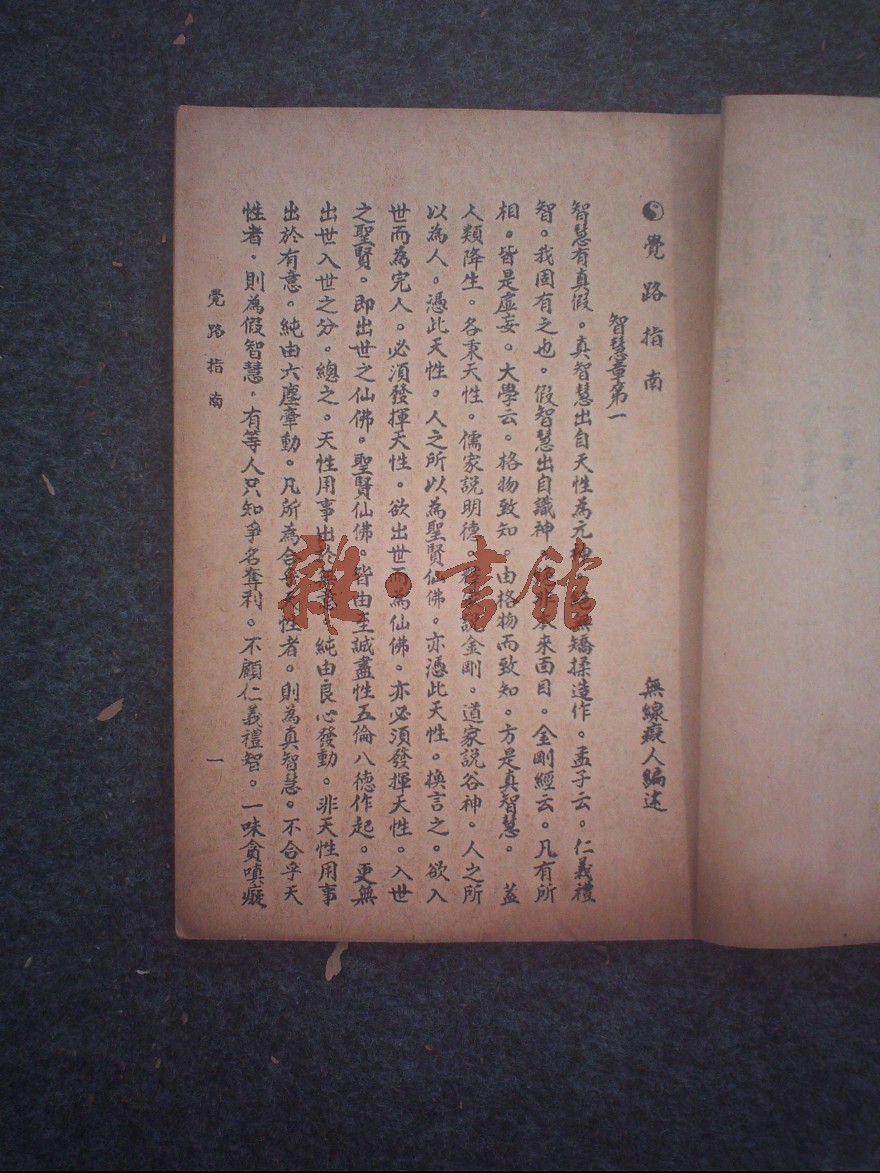 覺路指南
無線癡人編述
智慧章第一
智慧有真假。真智慧出自天性為元神。無矯揉造作。孟子云。仁義禮
智。我固有之也。假智慧出自識神。來面目。金剛經云。凡有所
相。皆是虛妄。大學云。格物致知。由格物而致知。方是真智慧。蓋
人類降生。各秉天性。儒家說明德。說金剛。道家說谷神。人之所
以為人。憑此天性。人之所以為聖賢仙佛。亦憑此天性。換言之。欲入
世而為完人。必須發揮天性。欲出世而為仙佛。亦必須發揮天性。入世
之聖賢。即出世之仙佛。聖賢仙佛。皆由至誠盡性五倫八德作起。更無
出世入世之分。總之。天性用事出於無意。純由良心發動。非天性用事
出於有意。純由六塵牽動。凡所為合乎天性者。則為真智慧。不合乎天
性者。則為假智慧。有等人只知爭名奪利。不顧仁義禮智。一味貪嗔癡
覺路指南
一
雜·書館